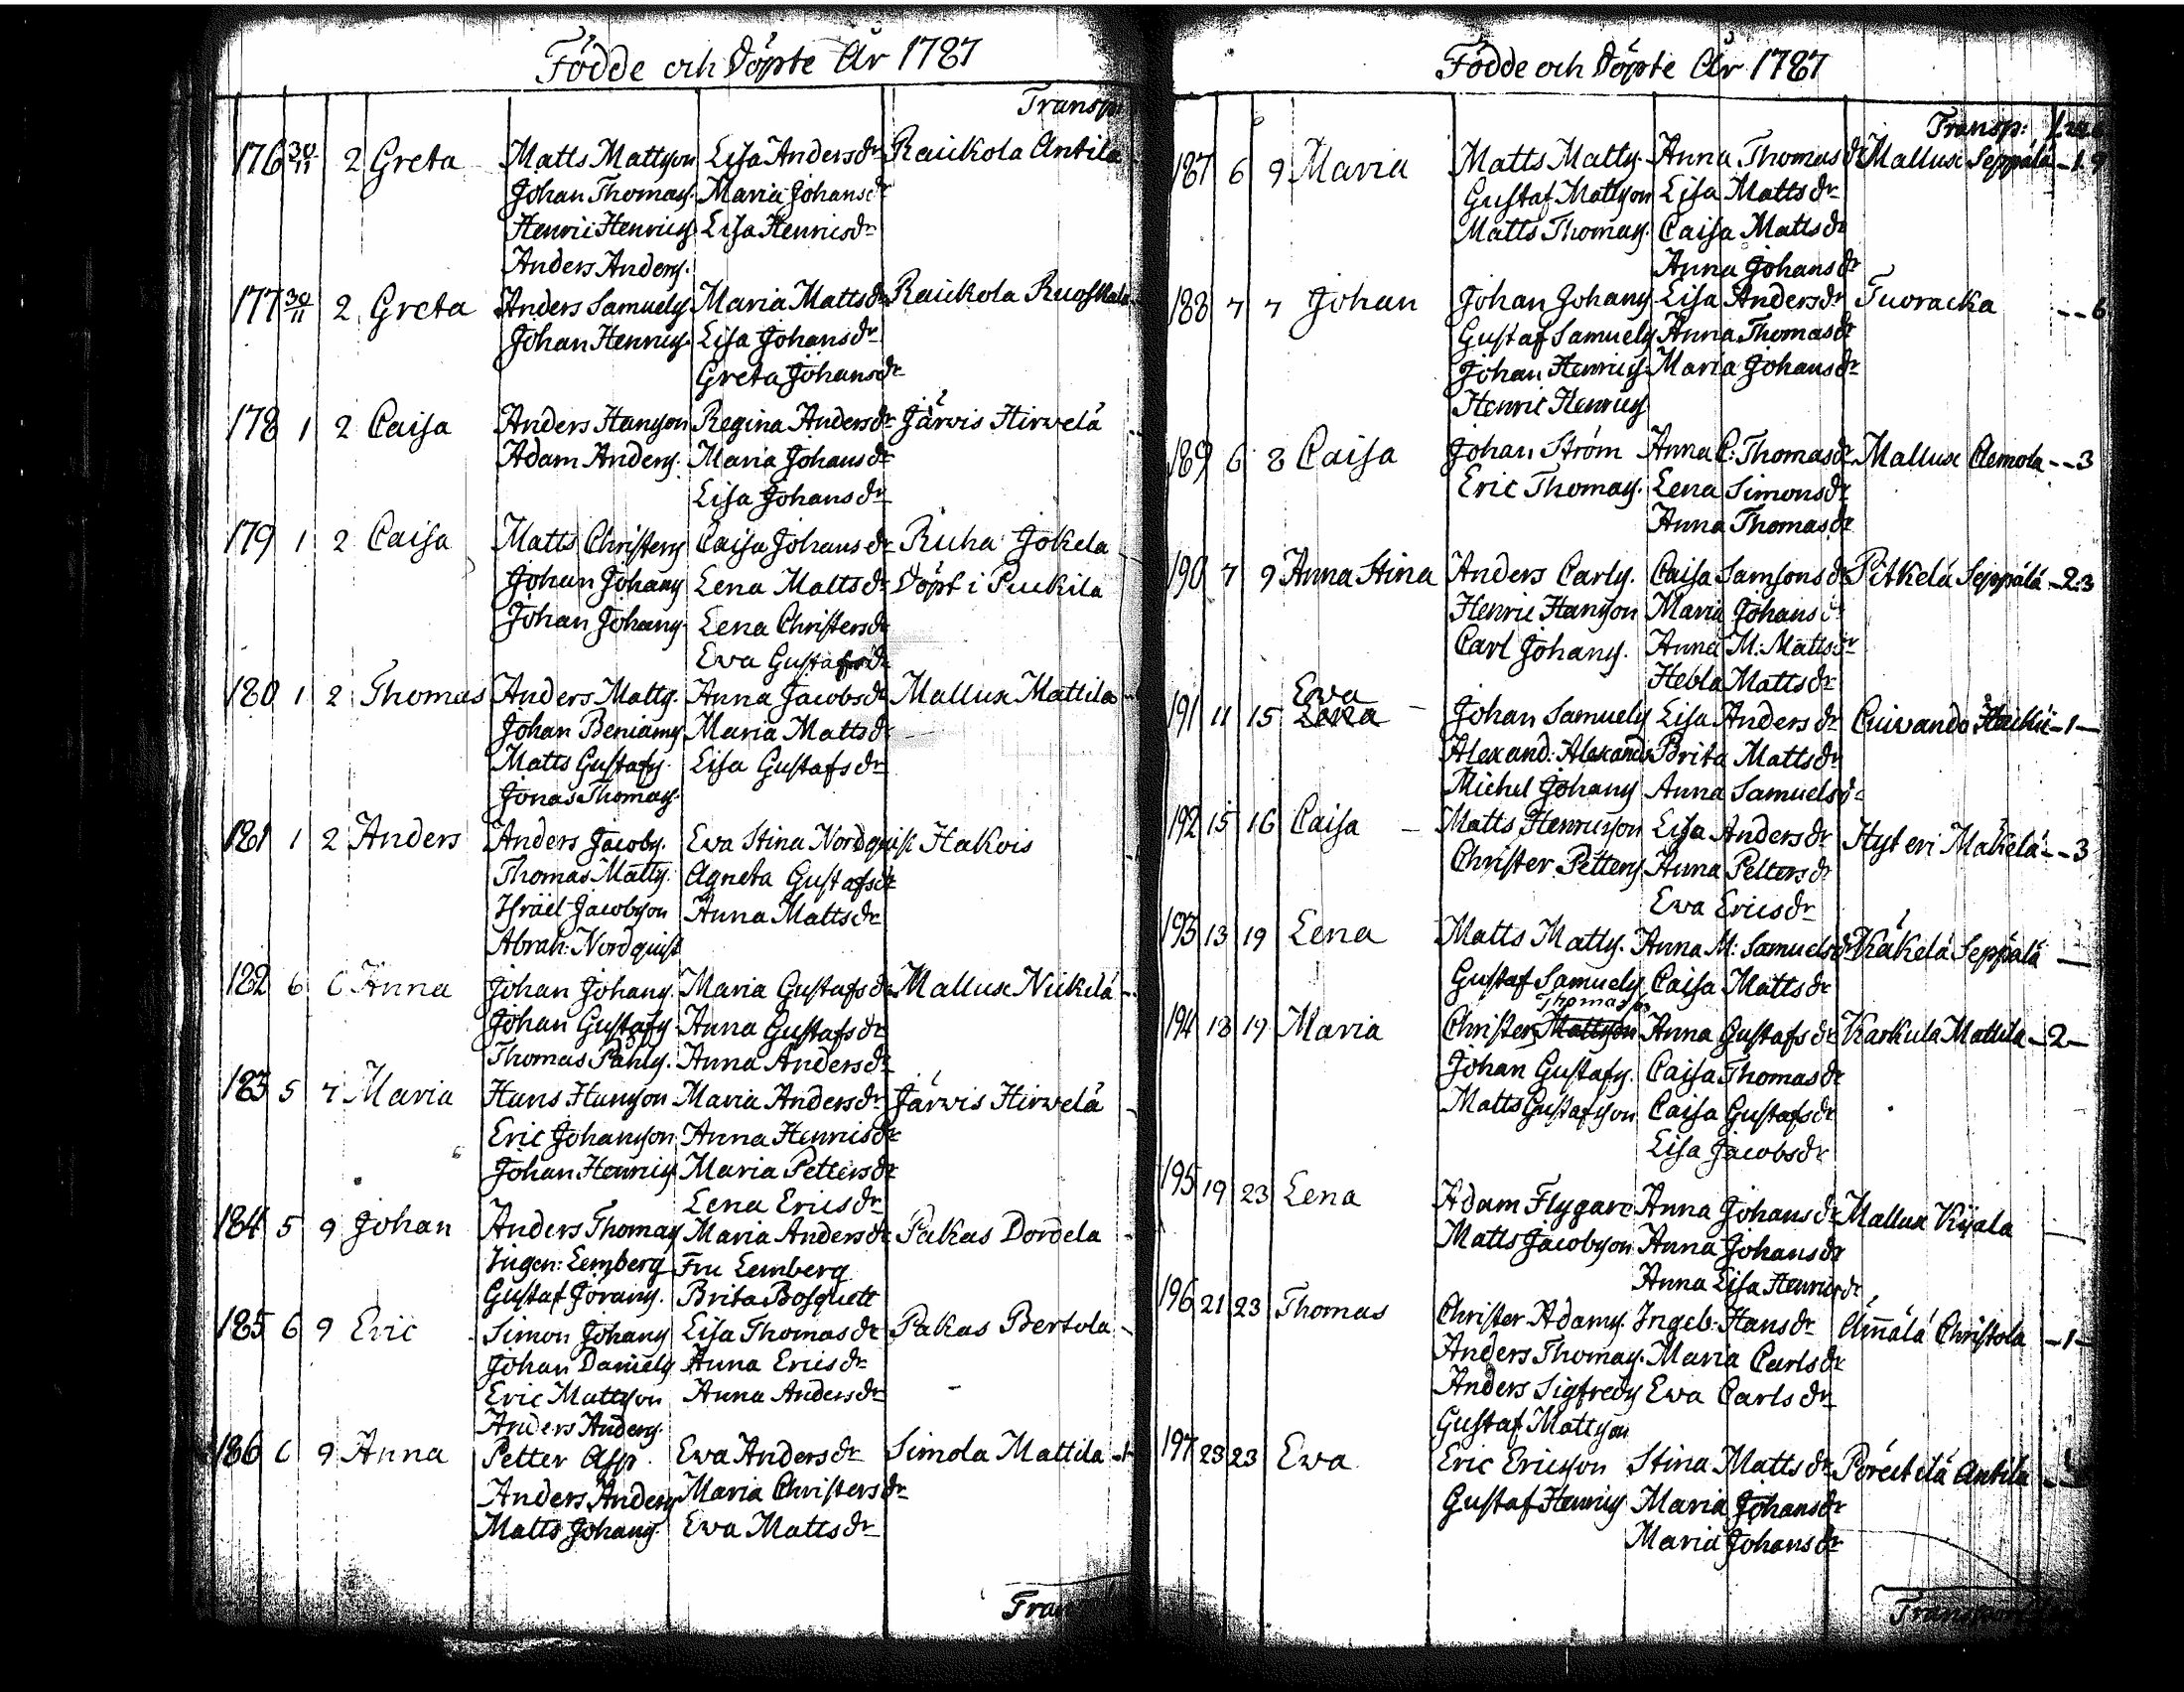 Födde och Döpte År 1787
Transp:
176 30/11 2 Greta Matts Mattsson Lisa Andersdr Raickola Antila
Johan Thomass. Maria Johansdr
Henric Henricss. Lisa Henricsdr
Anders Anderss.
177 30/11 2 Greta Anders Samuelss Maria Mattsdr Raickola Ruoskala
Johan Henricss. Lisa Johansdr
Greta Johansdr
178 1 2 Caisa Anders Hansson Regina Andersdr Järvis Hirvelä
Adam Anderss. Maria Johansdr
Lisa Johansdr
179 1 2 Caisa Matts Christerss Caisa Johansdr Ruha Jokela
Johan Johanss Lena Mattsdr Döpt i Puckila
Johan Johanss Lena Christersdr
Ewa Gustafsdr
180 1 2 Thomas Anders Mattss. Anna Jacobsdr Mallux Mattila
Johan Beniamss Maria Mattsdr
Matts Gustafss. Lisa Gustafsdr
Jonas Thomass.
181 1 2 Anders Anders Jacobss. Ewa Stina Nordquist Hakois
Thomas Mattss. Agneta Gustafsdr
Israel Jacobsson Anna Mattsdr
Abrah: Nordquist
182 6 6 Anna Johan Johanss. Maria Gustafsdr Mallux Nickelä
Johan Gustafss Anna Gustafsdr
Thomas Påhlss. Anna Andersdr
183 5 7 Maria Hans Hansson Maria Andersdr Järvis Hirvelä
Eric Johansson Anna Henricsdr
Johan Henricss Maria Pettersdr
Lena Ericsdr
184 5 9 Johan Anders Thomass Maria Andersdr Pakas Dordela
Ingen: Lemberg Fru Lemberg
Gustaf Jöranss. Brita Bosquett
185 6 9 Eric Simon Johanss Lisa Thomasdr Pakas Bertola
Johan Danielss Anna Ericsdr
Eric Mattsson Anna Andersdr
Anders Anderss.
186 6 9 Anna Petter Asp. Ewa Andersdr Simola Mattila -1-
Anders Anderss Maria Christersdr
Matts Johanss. Ewa Mattsdr
Födde och Döpte År 1787
Transp:
187 6 9 Maria Matts Mattss. Anna Thomasdr Mallux Seppälä -1. 9
Gustaf Mattsson Lisa Mattsdr
Matts Thomass. Caisa Mattsdr
Anna Johansdr
188 7 7 Johan Johan Johanss. Lisa Andersdr Tuoracka - - 6
Gustaf Samuelss Anna Thomasdr
Johan Henricss. Maria Johansdr
Henric Henricss
189 6 8 Caisa Johan Ström Anna C: Thomasdr Mallux Clemola - - 3
Eric Thomass. Lena Simonsdr
Anna Thomasdr
190 7 9 Anna Stina Anders Carlss. Caisa Samsonsdr Pitkelä Seppälä - 2. 3
Henric Hansson Maria Johansdr
Carl Johanss. Anna M: Mattsdr
Hebla Mattsdr
Ewa
191 11 15 Lena Johan Samuelss Lisa Andersdr Cuivando Heikii - 1 -
Alexand: Alexands Brita Mattsdr
Michel Johanss Anna Samuelsdr
192 15 16 Caisa Matts Henricsson Lisa Andersdr Hyteri Mäkelä - - 3
Christer Petterss Anna Pettersdr
Ewa Ericsdr
193 13 19 Lena Matts Mattss. Anna M: Samuelsdr Käkelä Seppälä
Gustaf Samuelss Caisa Mattsdr
Thomasson
194 18 19 Maria Christer Mattsson Anna Gustafsdr Karkula Mattila - 2 -
Johan Gustafss. Caisa Thomasdr
Matts Gustafsson Caisa Gustafsdr
Lisa Jacobsdr
195 19 23 Lena Adam Flygare Anna Johansdr Mallux Kijala
Matts Jacobsson Anna Johansdr
Anna Lisa Henricsdr
196 21 23 Thomas Christer Adamss. Ingeb: Hansdr Ämälä Christola - 1 -
Anders Thomass. Maria Carlsdr
Anders Sigfredss Ewa Carlsdr
Gustaf Mattsson
197 23 23 Ewa Eric Ericsson Stina Mattsdr Antila
Gustaf Henricss Maria Johansdr
Maria Johansdr